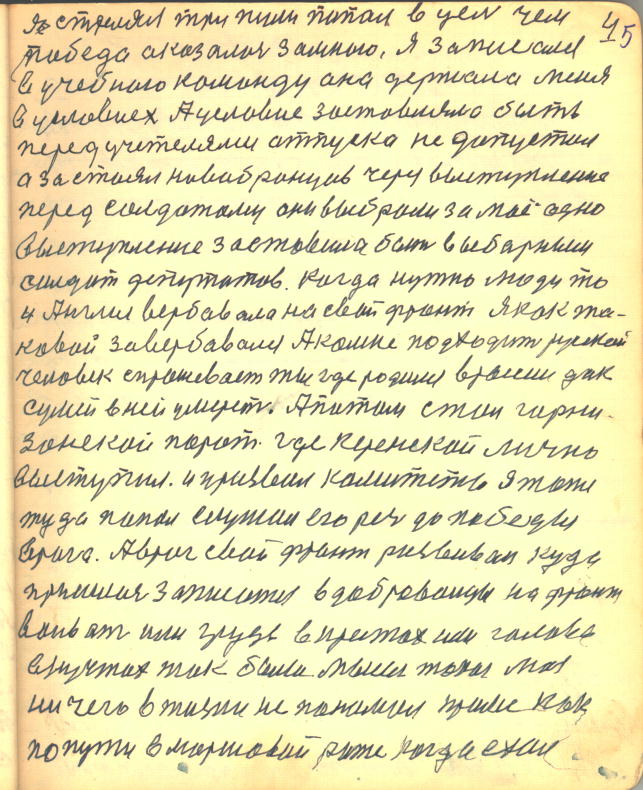 45
Я стрелял три пули попал в цел чем
победа аказалоя замною, я записаля
в учебною команду ана держала меня
в условиех А условие зоставляло быть
перед учителями атпуска не допустил
а застоял новабранцов через выступление
перед солдотому они выброли за маё одно
выступление зоставила быть выбарным
солдат депутатов. когда нужно люди то
и Англия вербавала на свой фронт я как та-
ковой завербавался А комне подходит руской
человек спрашевает ты где родился в росии дак
сумей в ней умереть. А потом стал гарни-
зонской парот. где Керенской лично
выступил. и призвал комитеты я тоже
туда попал слушал его реч до победы
врага. А враг свой фронт развивал куда
пришлоя записатя в добровольцы на фронт
воиват или грудь в крестах или голова
в кустах так была мысля тогда моя
ничего в жизни не понимал кроме как
по пути в маршовай роте когда ехал